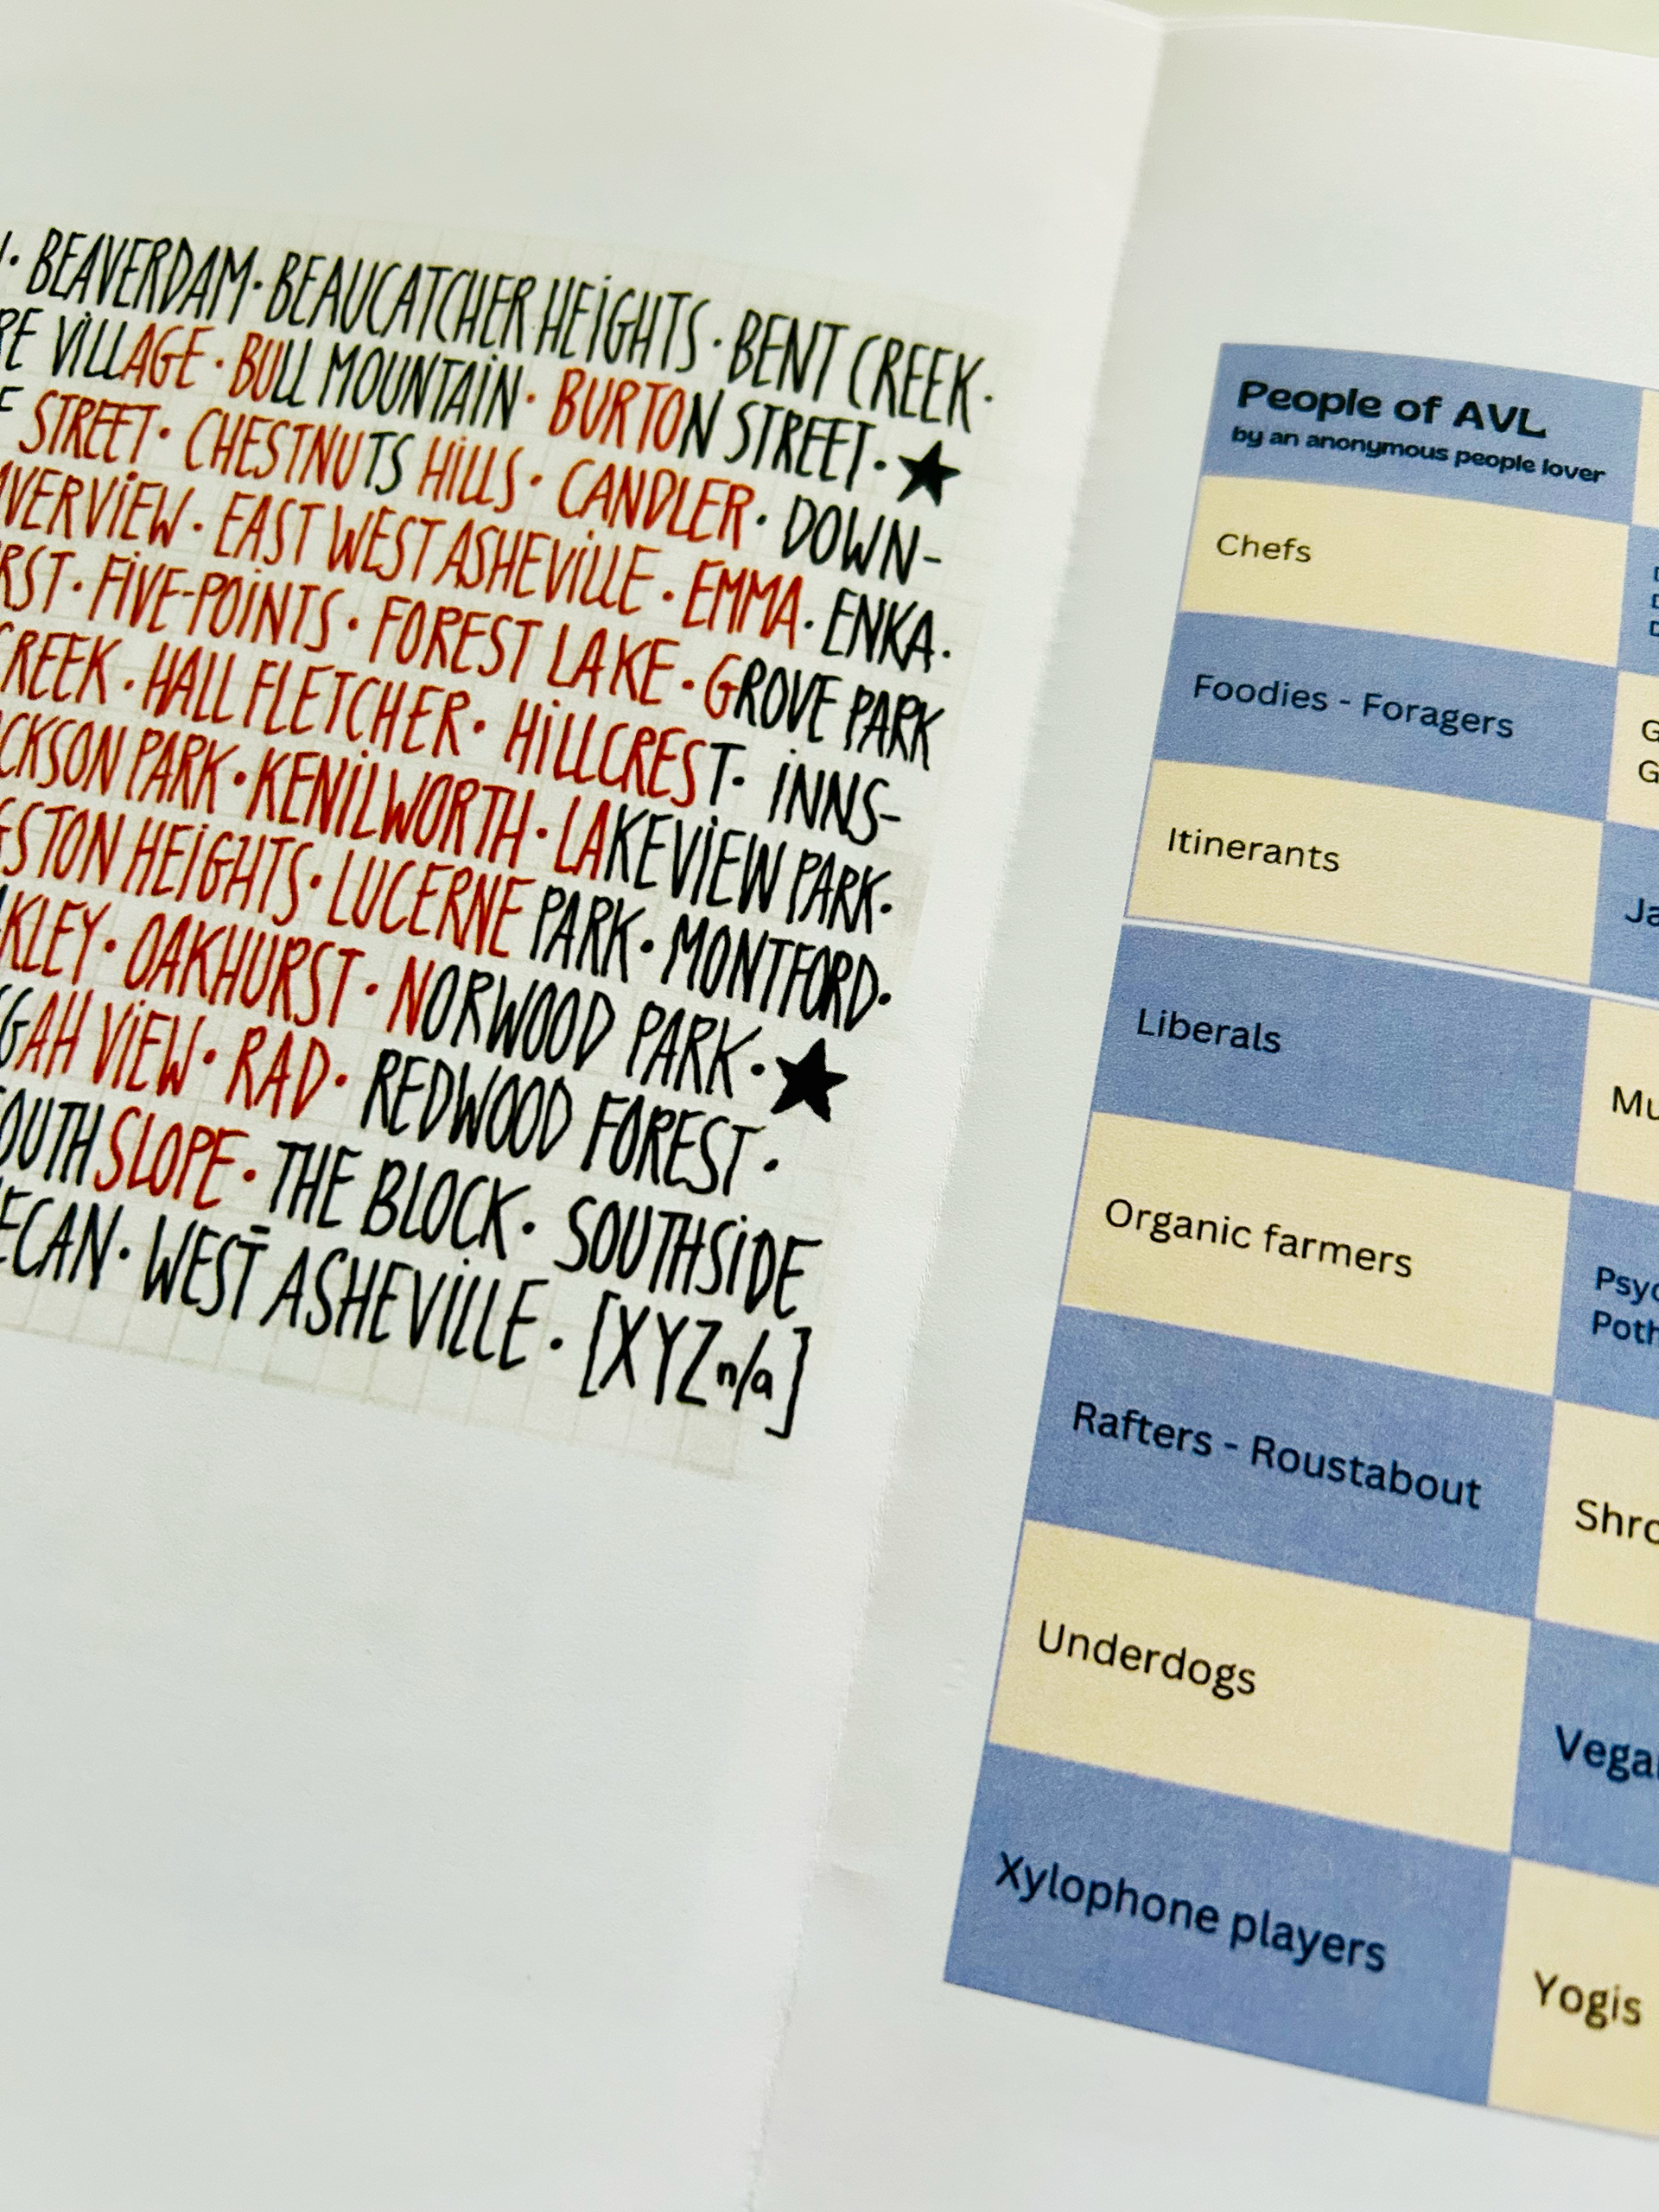 BEAVERDAM · BEAUCATCHER HEiGHTS · BENT CREEK ·
ViLLAGE · BULL MOUNTAiN · BURTON STREET · ★
STREET · CHESTNUTS HiLLS · CANDLER · DOWN-
EAST WEST ASHEViLLE · EMMA · ENKA ·
FiVE-POiNTS · FOREST LAKE · GROVE PARK
HALL FLETCHER · HiLLCREST · iNNS-
PARK · KENiLWORTH · LAKEViEW PARK ·
HEiGHTS · LUCERNE PARK · MONTFORD ·
OAKHURST · NORWOOD PARK · ★
ViEW · RAD · REDWOOD FOREST ·
SLOPE · THE BLOCK · SOUTHSiDE
WEST ASHEViLLE · [XYZ n/a]
People of AVL
by an anonymous people lover
Chefs
Foodies - Foragers
Itinerants
Liberals
Organic farmers
Rafters - Roustabout
Underdogs
Xylophone players
Yogis